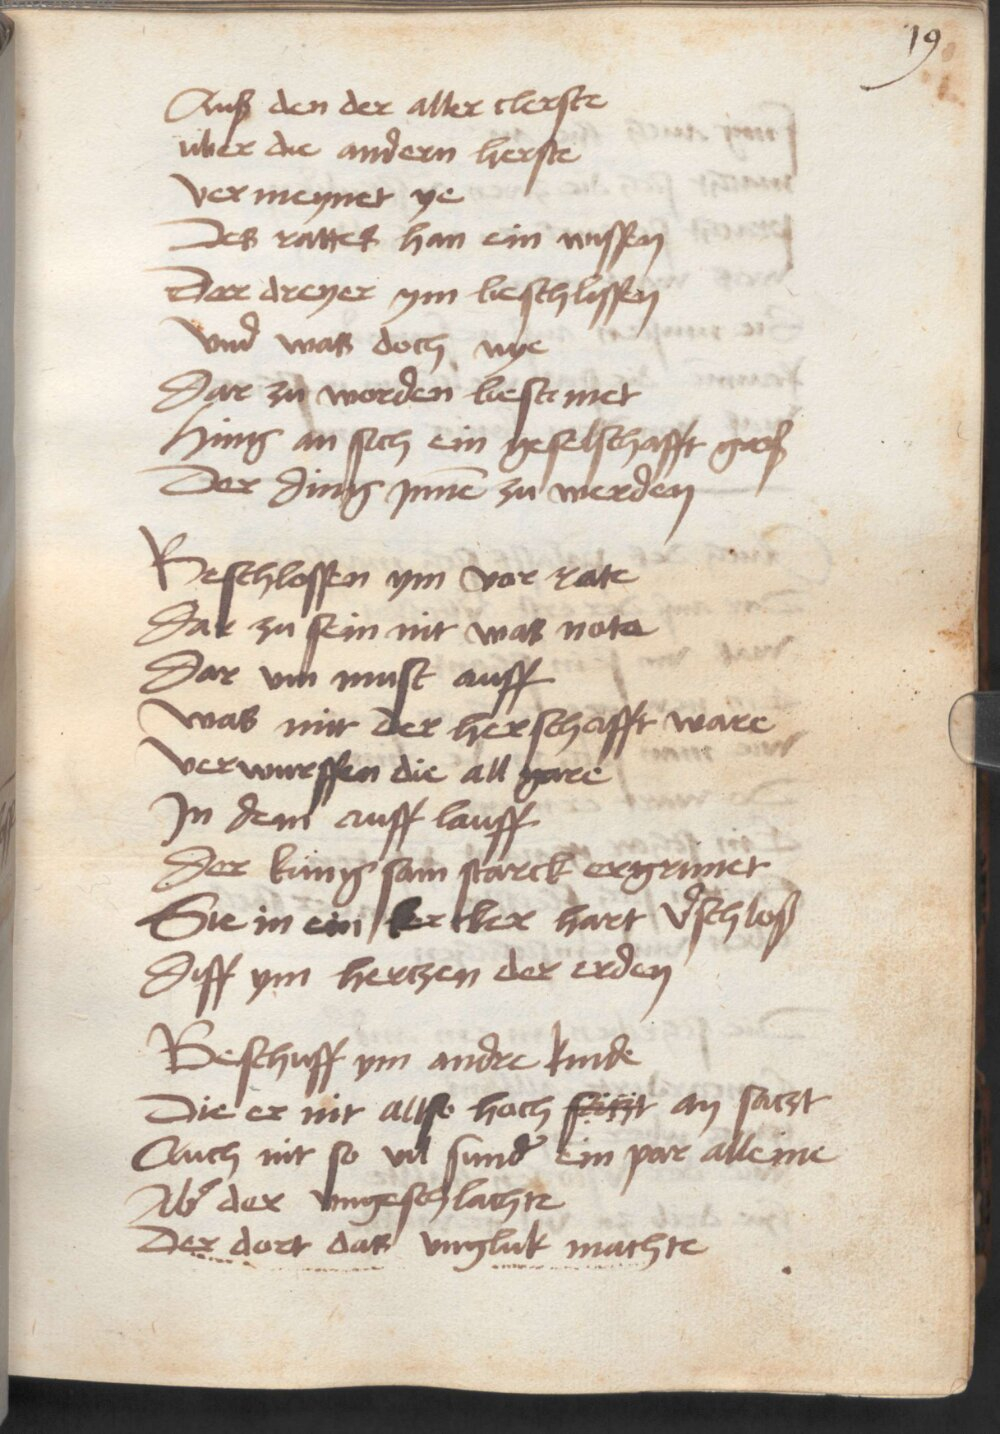 19
Auß den der aller clerste
uber die andern herste
Vermeynet ye
Des rattes han ein wissen
Der dreyer ym beschlissen
Vnd was doch nye
Dar zu worden bestimet
Hing an sich ein geselschafft groß
Der ding jnne zu werden
Beschlossen ym vor rate
Dar zu sein nit was note
Dar vm must auff
Was mit der herschafft ware
Verwurffen die all gare
In dem auff lauff
Der kung sam starck ergrimet
Sie in ein kercker hart vschloß
Diff ym hertzen der erden
Beschuff ym andre kinde
Die er nit allso hoch an satzt
Auch nit so vil sunder ein par alleine
Aber der vngeschlachte
Der dort das vngluk machte